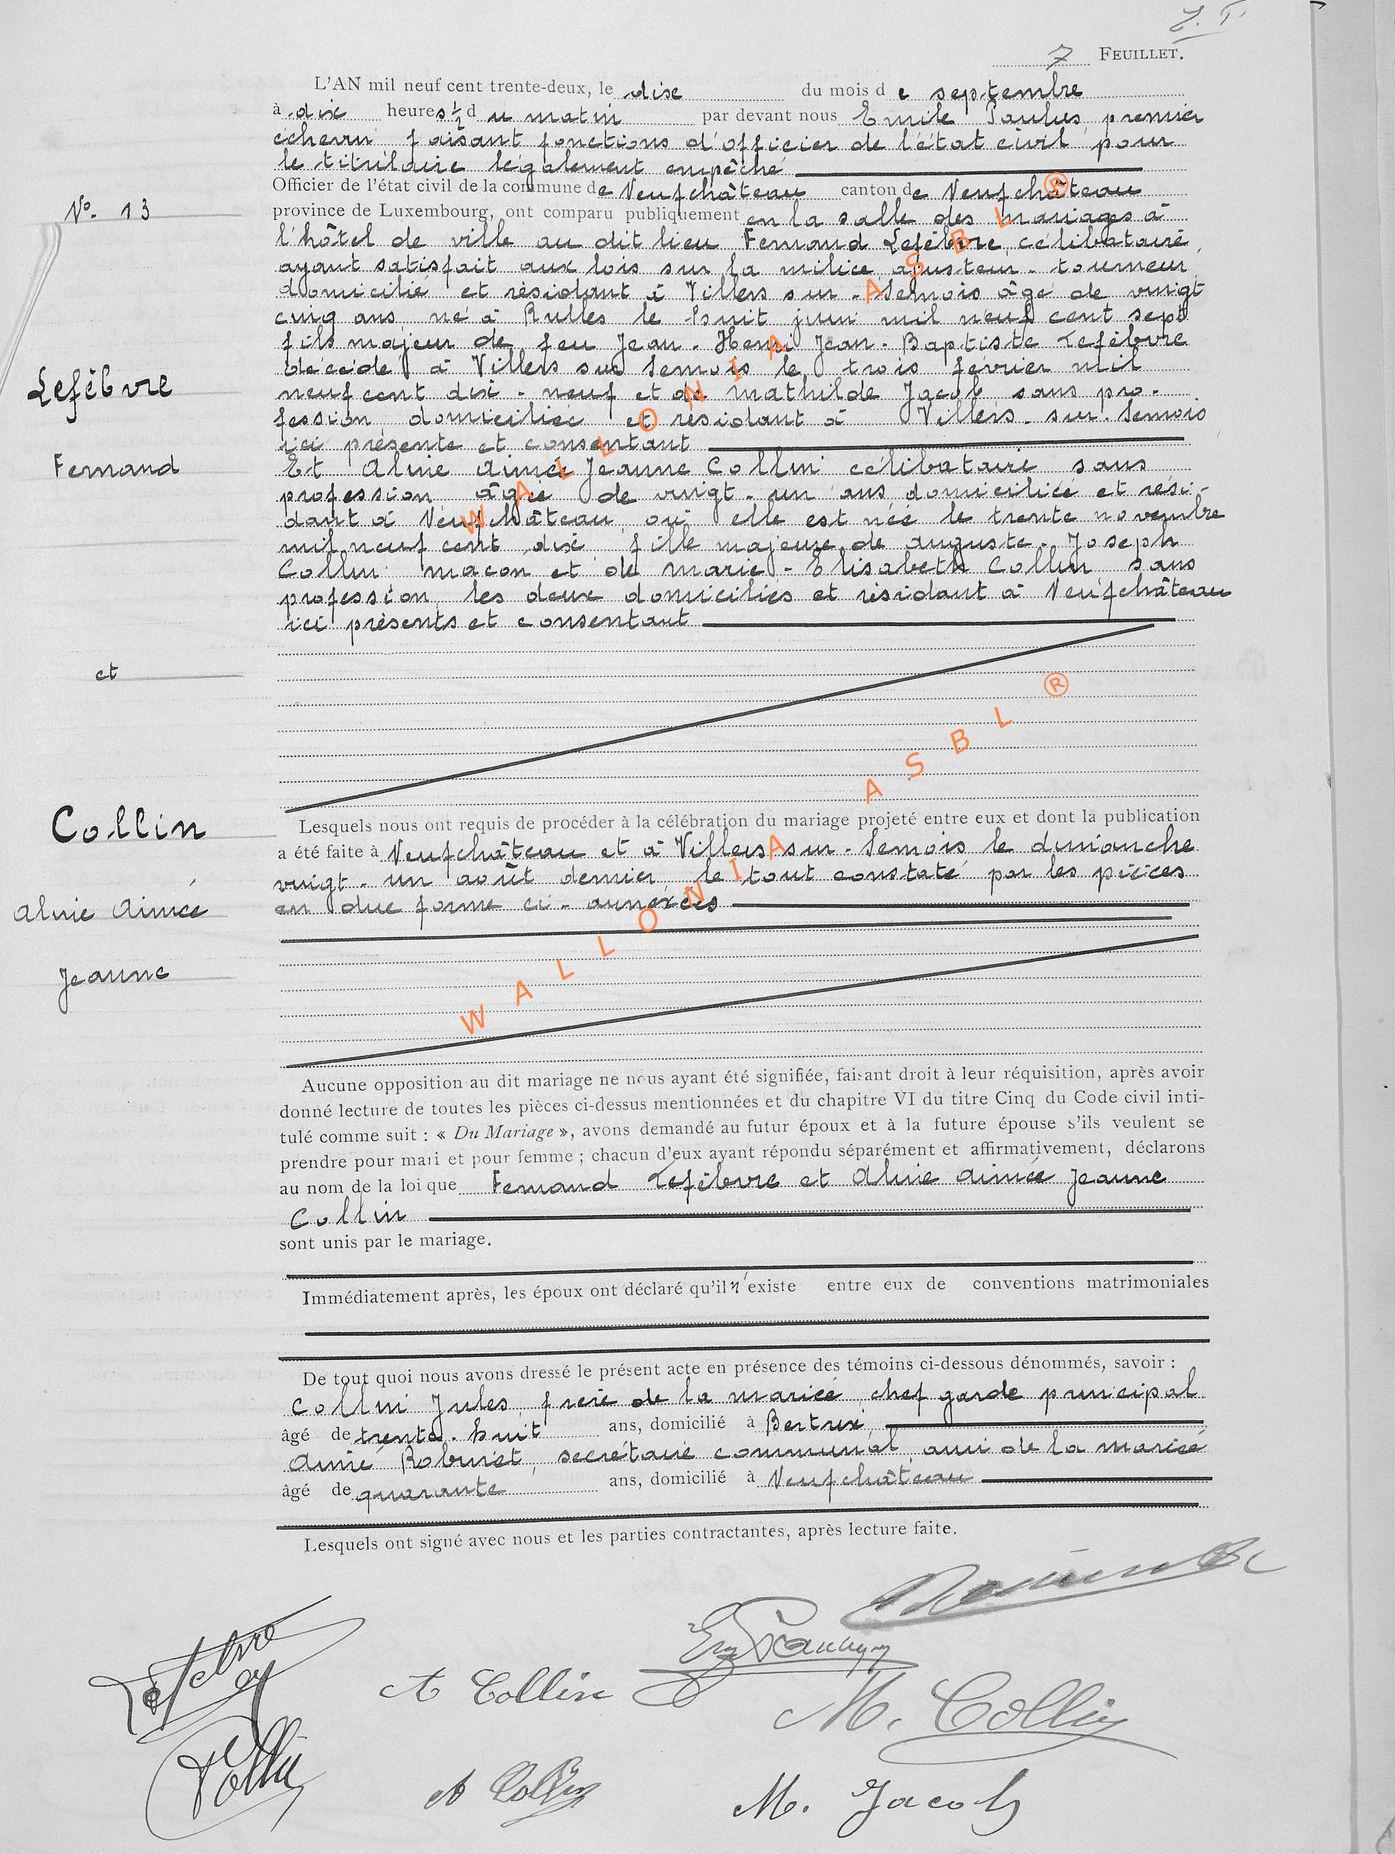 7 FEUILLET.
L'AN mil neuf cent trente-deux, le dix du mois de septembre
à dix heures ½ du matin par devant nous Emile Paulus, premier
échevin faisant fonctions d'officier de l'état civil pour
le titulaire légalement empêché
Officier de l'état civil de la commune de Neufchâteau canton de Neufchâteau
province de Luxembourg, ont comparu publiquement en la salle des mariages à
l'hôtel de ville au dit lieu Fernand Lefèbvre célibataire,
ayant satisfait aux lois sur la milice, ajusteur-tourneur,
domicilié et résidant à Villers sur-Semois âgé de vingt
cinq ans, né à Rulles le huit juin mil neuf cent sept
fils majeur de feu Jean-Henri Jean-Baptiste Lefèbvre
décédé à Villers sur Semois le trois février mil
neuf cent dix-neuf et de Mathilde Jacob sans pro-
fession domiciliée et résidant à Villers-sur-Semois,
ici présente et consentant
Et Aline Aimée Jeanne Collin célibataire sans
profession âgée de vingt-un ans domiciliée et rési-
dant à Neufchâteau, où elle est née le trente novembre
mil neuf cent dix fille majeure de Auguste-Joseph
Collin maçon et de Marie-Elisabeth Collin sans
profession, les deux domiciliés et résidant à Neufchâteau
ici présents et consentant
No. 13
Lefèbvre
Fernand
et
Collin
Aline Aimée
Jeanne
Lesquels nous ont requis de procéder à la célébration du mariage projeté entre eux et dont la publication
a été faite à Neufchâteau et à Villers-sur-Semois le dimanche
vingt-un août dernier, le tout constaté par les pièces
en due forme ci-annexées
Aucune opposition au dit mariage ne nous ayant été signifiée, faisant droit à leur réquisition, après avoir
donné lecture de toutes les pièces ci-dessus mentionnées et du chapitre VI du titre Cinq du Code civil inti-
tulé comme suit : « Du Mariage », avons demandé au futur époux et à la future épouse s'ils veulent se
prendre pour mari et pour femme ; chacun d'eux ayant répondu séparément et affirmativement, déclarons
au nom de la loi que Fernand Lefèbvre et Aline Aimée Jeanne
Collin
sont unis par le mariage.
Immédiatement après, les époux ont déclaré qu'il n'existe entre eux de conventions matrimoniales
De tout quoi nous avons dressé le présent acte en présence des témoins ci-dessous dénommés, savoir :
Collin Jules, frère de la mariée, chef garde principal
âgé de trente-huit ans, domicilié à Bertrix,
Aimé Robinet, secrétaire communal, ami de la mariée
âgé de quarante ans, domicilié à Neufchâteau
Lesquels ont signé avec nous et les parties contractantes, après lecture faite.
Lefebvre
A Collin
M. Collin
Collin
A Collin
M. Jacob
WALLONIA ASBL ®
WALLONIA ASBL ®